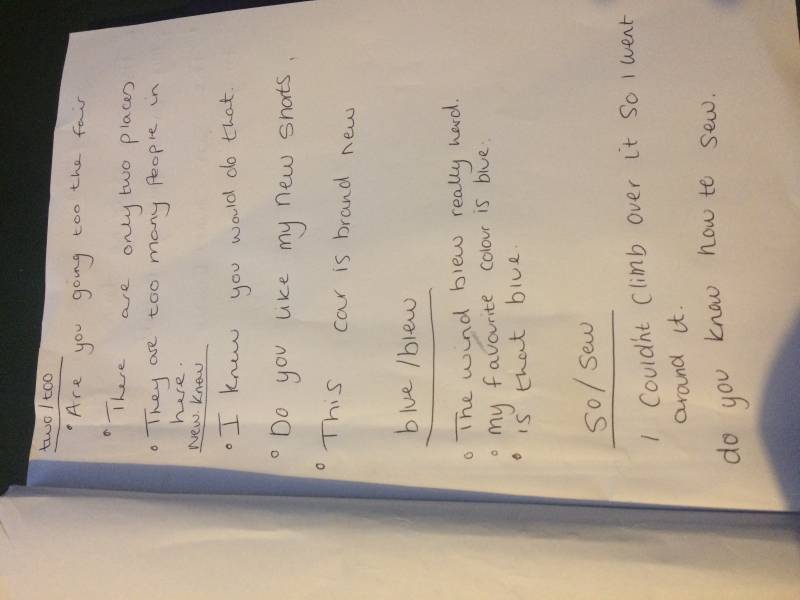 two/too
• Are you going too the fair
• There are only two places
• They are too many people in
here.
New. Know
• I knew you would do that.
• Do you like my new shorts.
• This car is brand new
blue/blew
• The wind blew really hard.
• my favourite colour is blue.
• is that blue.
So/Sew
I Couldnt Climb over it So I went
around it.
do you know how to sew.